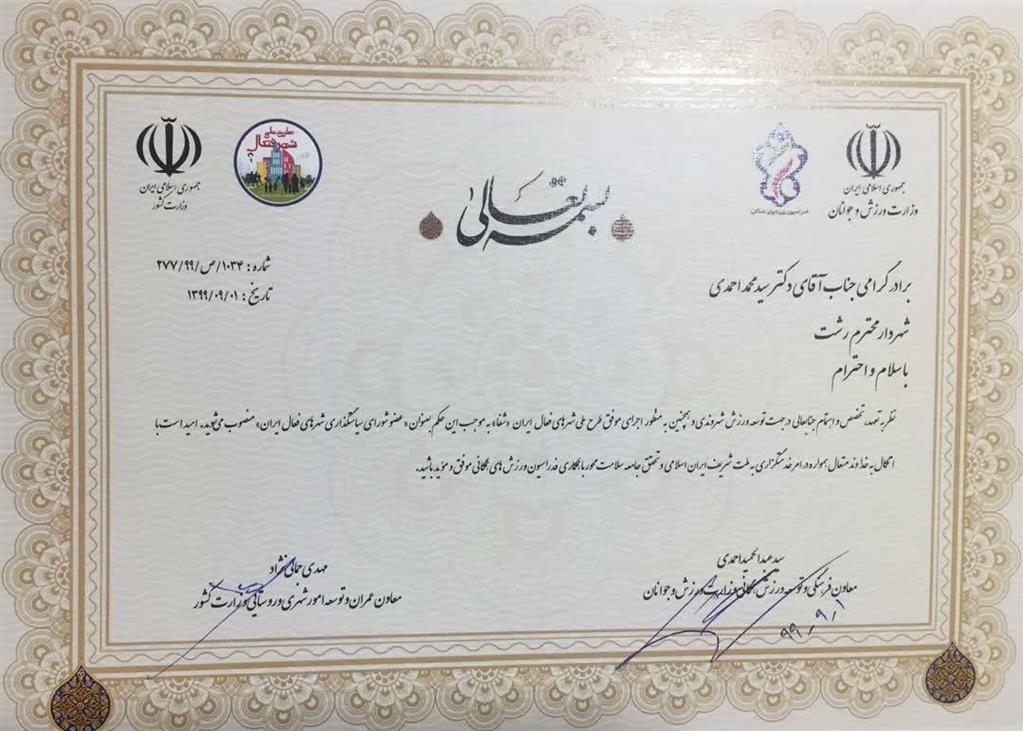 جمهوری اسلامی ایران
وزارت ورزش و جوانان
فدراسیون ورزشهای همگانی
شهر فعال
جمهوری اسلامی ایران
وزارت کشور
بسمه تعالی
شماره : ۲۷۷/۹۹/ص/۱۰۳۴
تاریخ : ۱۳۹۹/۰۹/۰۱
برادر گرامی جناب آقای دکتر سید محمد احمدی
شهردار محترم رشت
با سلام و احترام
نظر به تعهد، تخصص و اهتمام جنابعالی در جهت توسعه ورزش شهروندی و همچنین به منظور اجرای موفق طرح ملی شهرهای فعال ایران «شفا» به موجب این حکم بعنوان «عضو شورای سیاستگذاری شهرهای فعال ایران» منصوب می‌شوید. امید است با
اتکال به خداوند متعال همواره در امر خدمتگزاری به ملت شریف ایران اسلامی و تحقق جامعه سلامت محور با همکاری فدراسیون ورزش های همگانی موفق و مؤید باشید.
سید عبدالحمید احمدی
معاون فرهنگی و توسعه ورزش همگانی وزارت ورزش و جوانان
۹۹,۹,۱
مهدی جمالی نژاد
معاون عمران و توسعه امور شهری و روستایی وزارت کشور